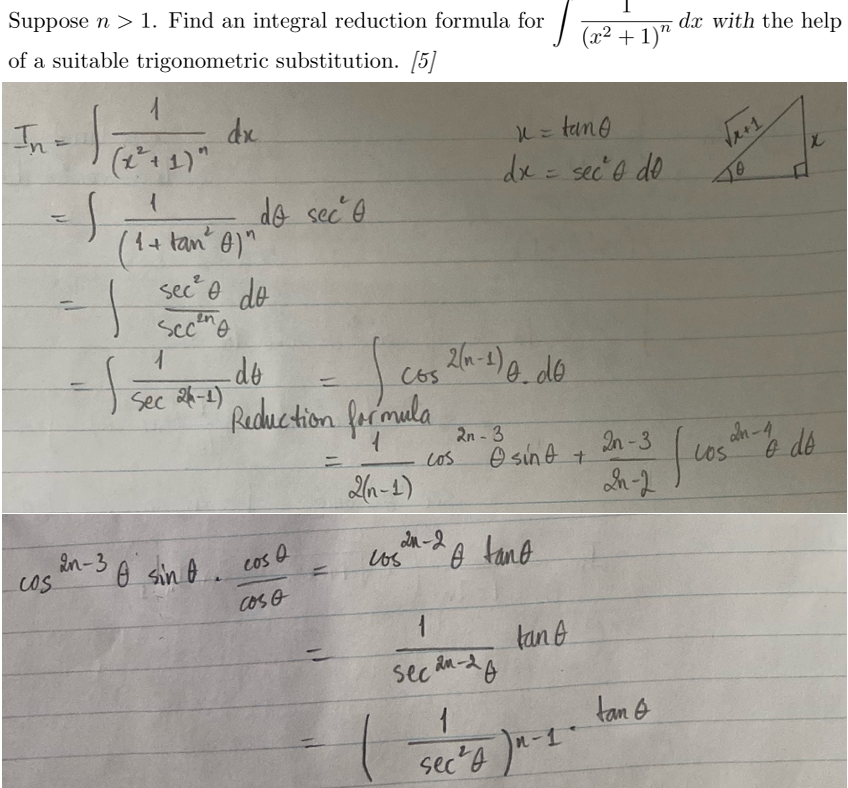 Suppose n > 1. Find an integral reduction formula for ∫ 1/(x² + 1)ⁿ dx with the help
of a suitable trigonometric substitution. [5]
Iₙ = ∫ 1/(x² + 1)ⁿ dx
x = tanθ
dx = sec²θ dθ
√x+1
x
θ
= ∫ 1/(1 + tan²θ)ⁿ dθ sec²θ
= ∫ sec²θ/sec²ⁿθ dθ
= ∫ 1/sec^{2(n-1)} dθ = ∫ cos^{2(n-1)}θ. dθ
Reduction formula
= 1/2(n-1) cos^{2n-3}θ sinθ + (2n-3)/(2n-2) ∫ cos^{2n-4}θ dθ
cos^{2n-3}θ sinθ . cosθ/cosθ = cos^{2n-2}θ tanθ
= 1/sec^{2n-2}θ tanθ
= (1/sec²θ)^{n-1} . tanθ